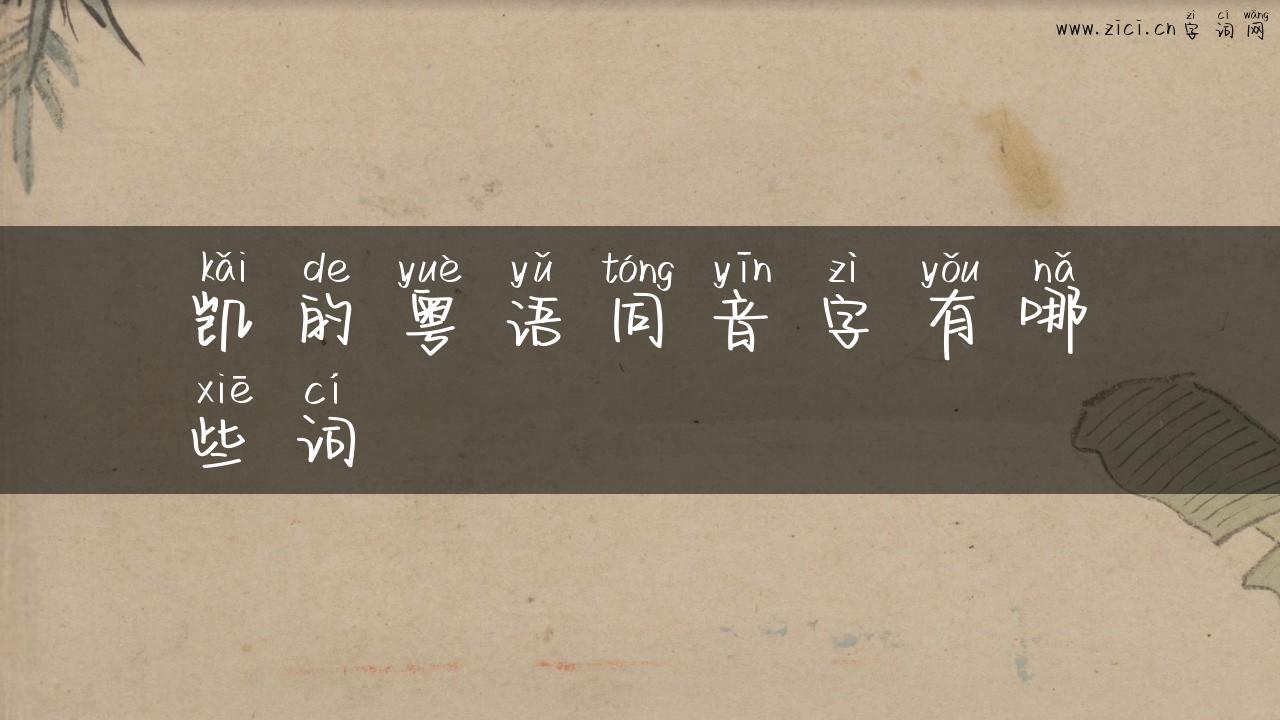 zì cí wǎng
www.zici.cn 字词网
kǎi de yuè yǔ tóng yīn zì yǒu nǎ
凯的粤语同音字有哪
xiē cí
些词